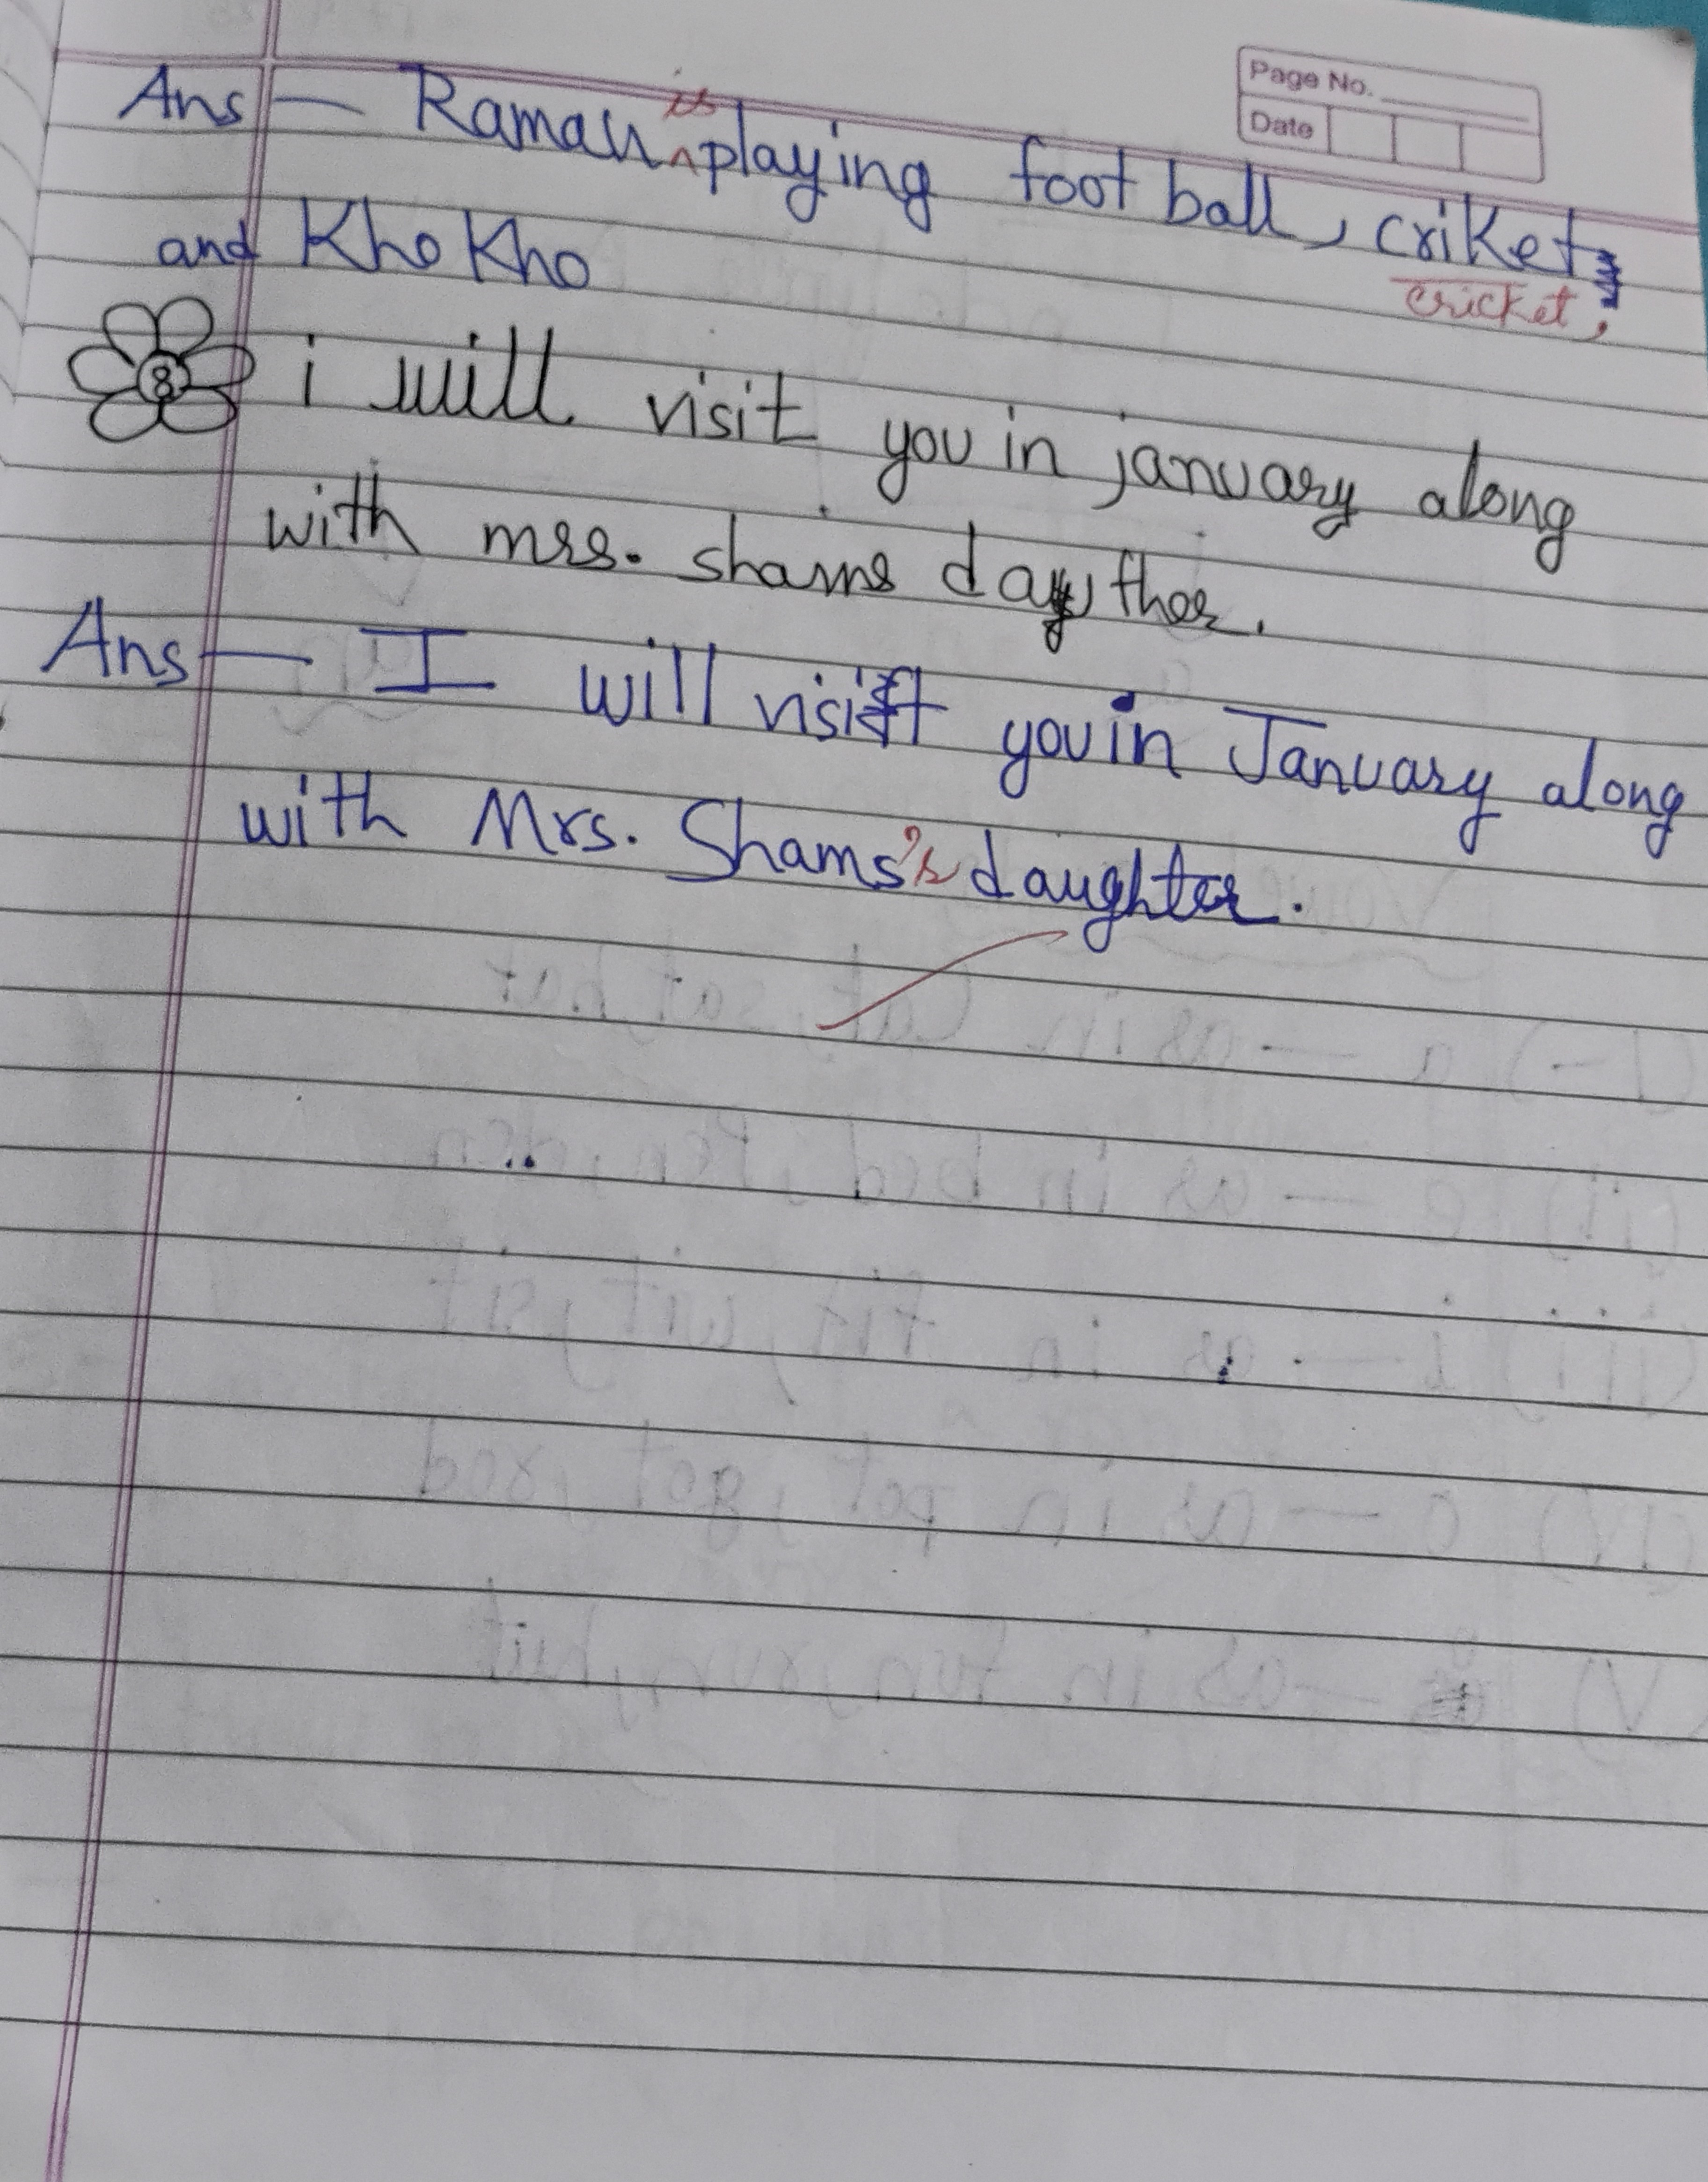 Page No.
Date
is
Ans — Raman ^ playing foot ball, criket,
cricket,
and Kho Kho
8 i will visit you in january along
with mrs. shams daughther.
Ans — I will visit you in January along
with Mrs. Shams's daughter.